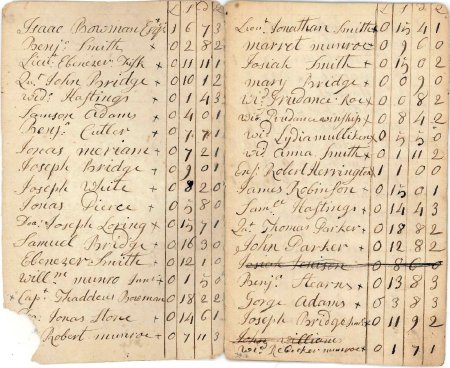 £ s d q
Isaac Bowman Esqr + 1 6 7 3
Benj. Smith + 0 2 8 2
Lieu. Ebenezer Fisk + 0 11 11 1
Qr. John Bridge + 0 10 1 2
Wid. Hastings + 0 1 4 3
Samson Adams + 0 4 0 1
Benj. Cutler + 0 7 1
Jonas meriam + 0 7 2 1
Joseph Bridge + 0 9 0 1
Joseph White + 0 8 2 0
Jonas Pierce + 0 5 8 0
Dea. Joseph Loring + 0 15 7 1
Samuel Bridge + 0 16 3 0
Ebenezer Smith + 0 12 1 0
Willm munro Junr + 0 1 5 0
+ Cap. Thaddeus Bowman 0 18 2 2
Jonas Stone + 0 14 6 1
Robert munroe + 0 7 11 3
£ s d q
Lieu. Jonathan Smith + 0 15 4 1
marret munroe + 0 9 6 0
Josiah Smith + 0 15 0 2
mary Bridge + 0 0 9 0
Wid. Prudance + 0 0 8 2
Wid. Prudance winship + 0 8 4 2
Wid. Lydia mulliken + 0 5 5 0
Wid. anna Smith + 0 1 11 2
Ens. Robert Herrington 1 1 0 0
James Robinson + 0 15 0 1
Saml. Hastings + 0 14 4 3
Qr. Thomas Parker + 0 18 8 2
John Parker + 0 12 8 2
Benj. Stearns + 0 13 8 3
Gorge Adams + 0 3 8 3
Joseph Bridge + 0 11 9 2
John William
Wid. munroe + 0 1 7 1